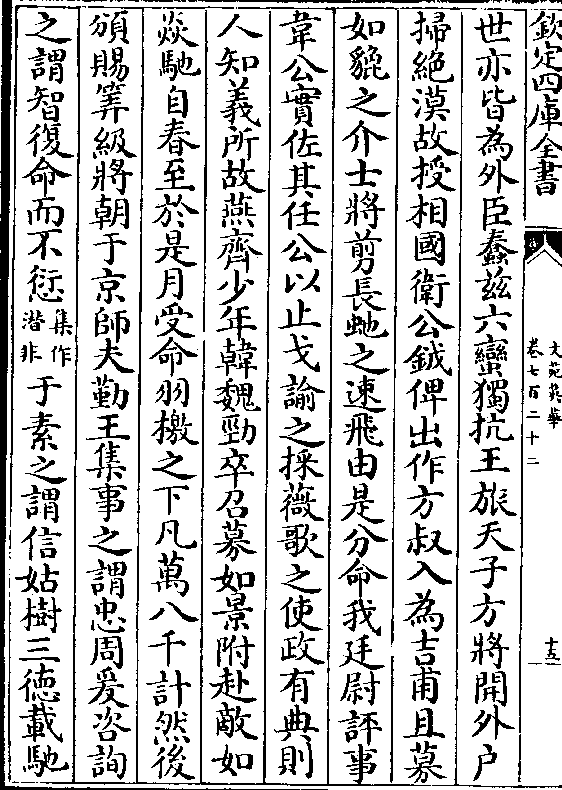 欽定四庫全書
文苑英華
卷七百二十二
十五
世亦皆為外臣蠢兹六蠻獨抗王旅天子方將開外户
掃絶漠故授相國衛公鉞俾出作方叔入為吉甫且募
如貔之介士將剪長虵之速飛由是分命我廷尉評事
韋公實佐其任公以止戈諭之採薇歌之使政有典則
人知義所故燕齊少年韓魏勁卒召募如景附赴敵如
焱馳自春至於是月受命羽檄之下凡萬八千計然後
頒賜筭級將朝于京師夫勤王集事之謂忠周爰咨詢
之謂智復命而不愆集作潜非于素之謂信姑樹三徳載馳